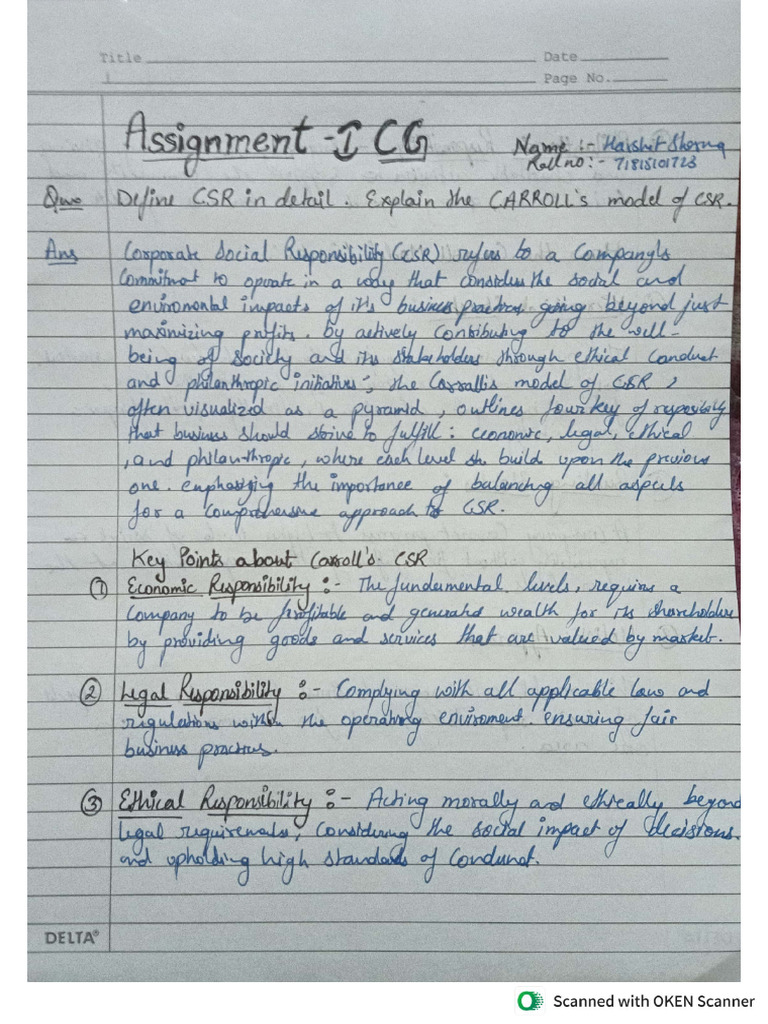 Title
Date
Page No.
Assignment - I CG
Name :- Harshit Sharma
Roll no :- 71815101723
Ques Define CSR in detail. Explain the CARROLL's model of CSR.
Ans Corporate Social Responsibility (CSR) refers to a Company's
Commitment to operate in a way that considers the social and
environmental impacts of it's business practices, going beyond just
maximizing profits. by actively contributing to the well-
being of society and its stakeholders through ethical conduct
and philanthropic initiatives; the Carrall's model of CSR,
often visualized as a pyramid, outlines four key of resposibility
that business should strive to fulfill: economic, legal, ethical
, and philanthropic, where each level build upon the previous
one. emphasizing the importance of balancing all aspects
for a comprehensive approach to CSR.
Key Points about Carroll's CSR
① Economic Responsibility :- The fundamental levels, requires a
Company to be profitable and generated wealth for its shareholders
by providing goods and services that are valued by market.
② Legal Responsibility :- Complying with all applicable law and
regulations within the operating enviroment. ensuring fair
business practices.
③ Ethical Responsibility :- Acting morally and ethically beyond
legal requirements, Considering the social impact of decisions.
and upholding high standards of Conduct.
DELTA®
Scanned with OKEN Scanner